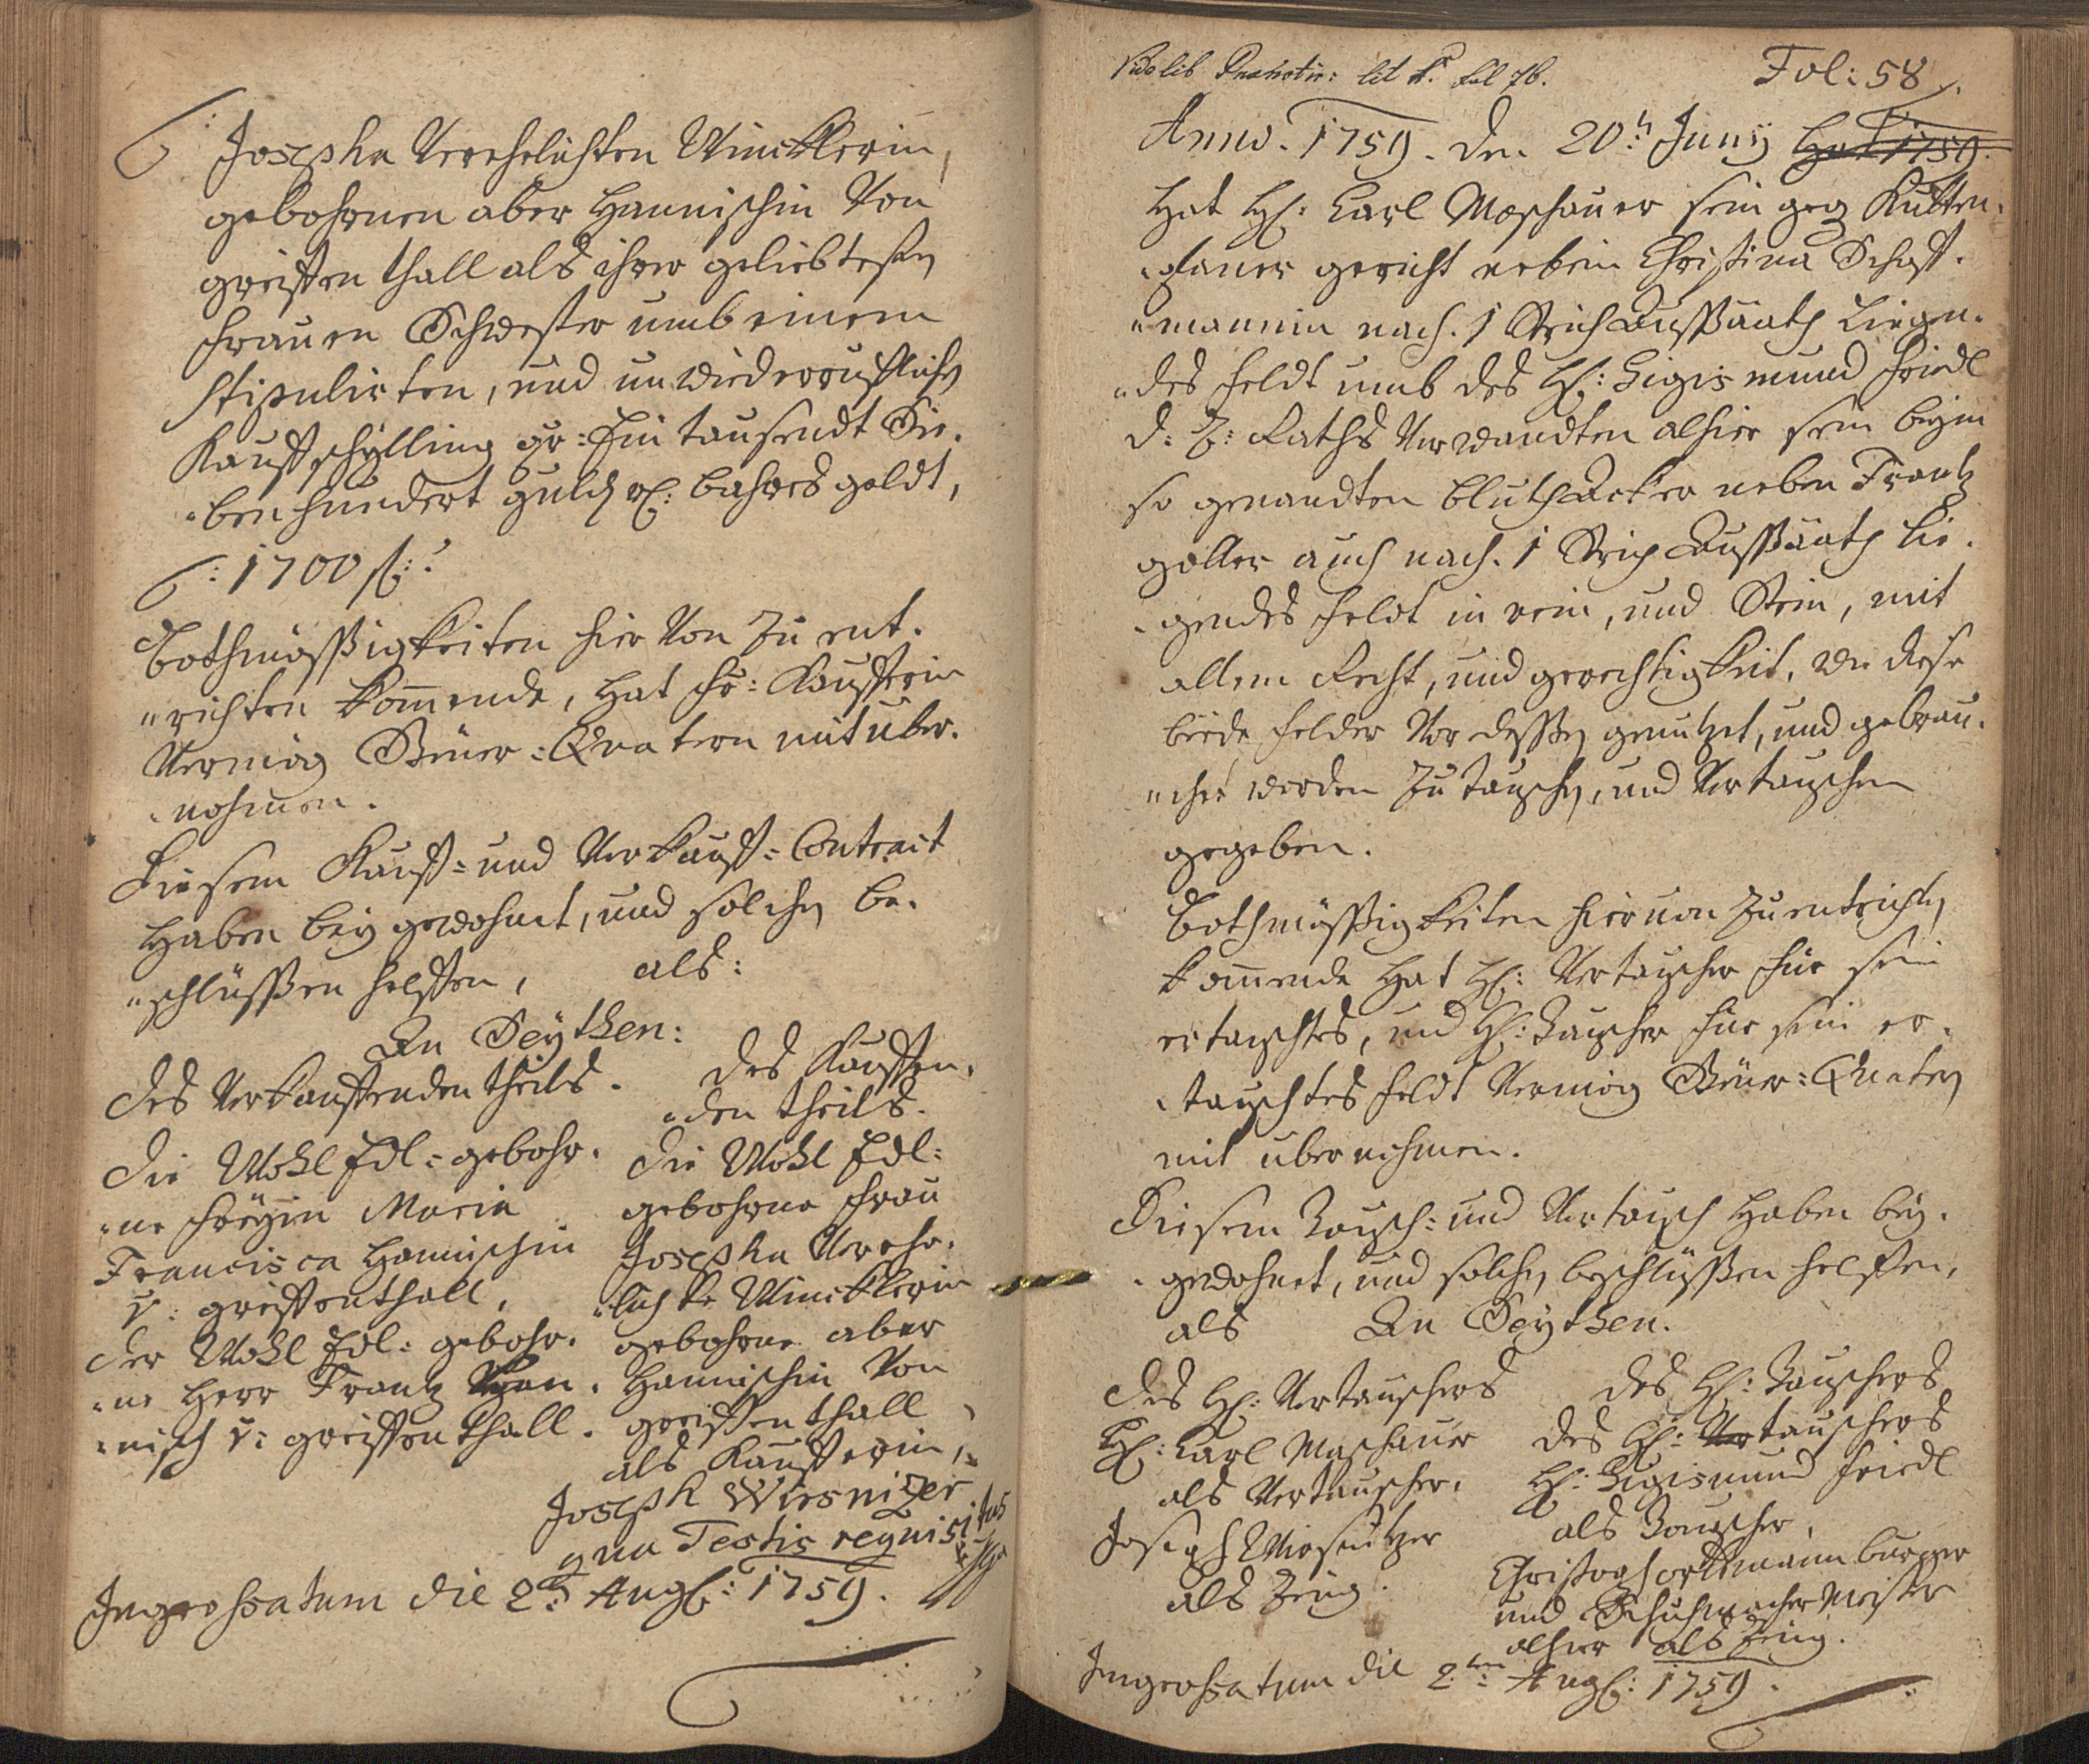 Josepha Verehelichten Wincklerin,
gebohrnen aber Hannischin Von
greiffenthall als ihrer geliebtesten
Frauen Schwester umb einem
stipulirten, und unwiederrufflichen
Kauffschylling gr: Ein tausendt Sie-
"ben hundert guld rh: bahres geldt,
/: 1700 fl: :/
Bothmässigkeiten hier Von zu ent-
"richten kom̄ende, hat Fr: Kaufferin
Vermög Steuer-Quatern mit über-
"nohmen.
Diesem Kauff- und Verkauff-Contract
Haben beygewohnet, und solchen be-
"schlüssen helffen, als:
An Seythen:
Des Verkauffenden theils.
Die Wohl Edl-gebohr-
"ne Freyin Maria
Francisca Hannischin
v: greiffenthall,
der Wohl Edl-gebohr-
"ne Herr Frantz Han-
"nisch v: greiffenthall.
des Kauffen-
"den theils.
Die Wohl Edl-
gebohrne Frau
Josepha Vereh-
"lichte Wincklerin
gebohrne aber
Hannischin Von
greiffenthall
als Kaufferin,
Joseph Wiesnizer
qua Testis requisitus
Ingrossatum die 2t Aug: 1759.
Fol: 58
Anno. 1759. den 20t Juny Hat 1759.
Hat H: Carl Moschauer sein geg Kutten-
"planer gericht nebein Christina Schaff-
"mannin nach. 1 Strich Aussäath Liegen-
"des Feldt umb des H: Sigismund Friedl
d: Z: Raths Verwandten alhier sein beym
so genandten bluthacker neben Frantz
goller auch nach. 1 Strich Aussäath Lie-
"gendes Feldt in rein, und Stein, mit
allem Recht, und gerechtigkeit, wie diese
beede Felder Vor dessen genutzet, und gebrau-
"chet worden zu tauschen, und Vertauschen
gegeben.
Bothmässigkeiten hiervon zu entrichten
kom̄ende hat H: Vertauscher für sein
ertauschtes, und H: Tauscher für sein er-
"tauschtes Feldt Vermög Steuer-Quatern
mit übernohmen.
Diesem Tausch- und Vertausch haben bey-
"gewohnet, und solchen beschlüssen helffen,
als An Seythen.
Des H: Vertauschers
H: Carl Moschauer
als Vertauscher,
Joseph Wiesnitzer
als Zeug.
Des H: Tauschers
Des H: Vertauschers
H: Sigismund Friedl
als Tauscher,
Christoph ortmann burger
und Schuhmacher Meister
alhier als Zeug.
Ingrossatum die 2ten Aug: 1759.